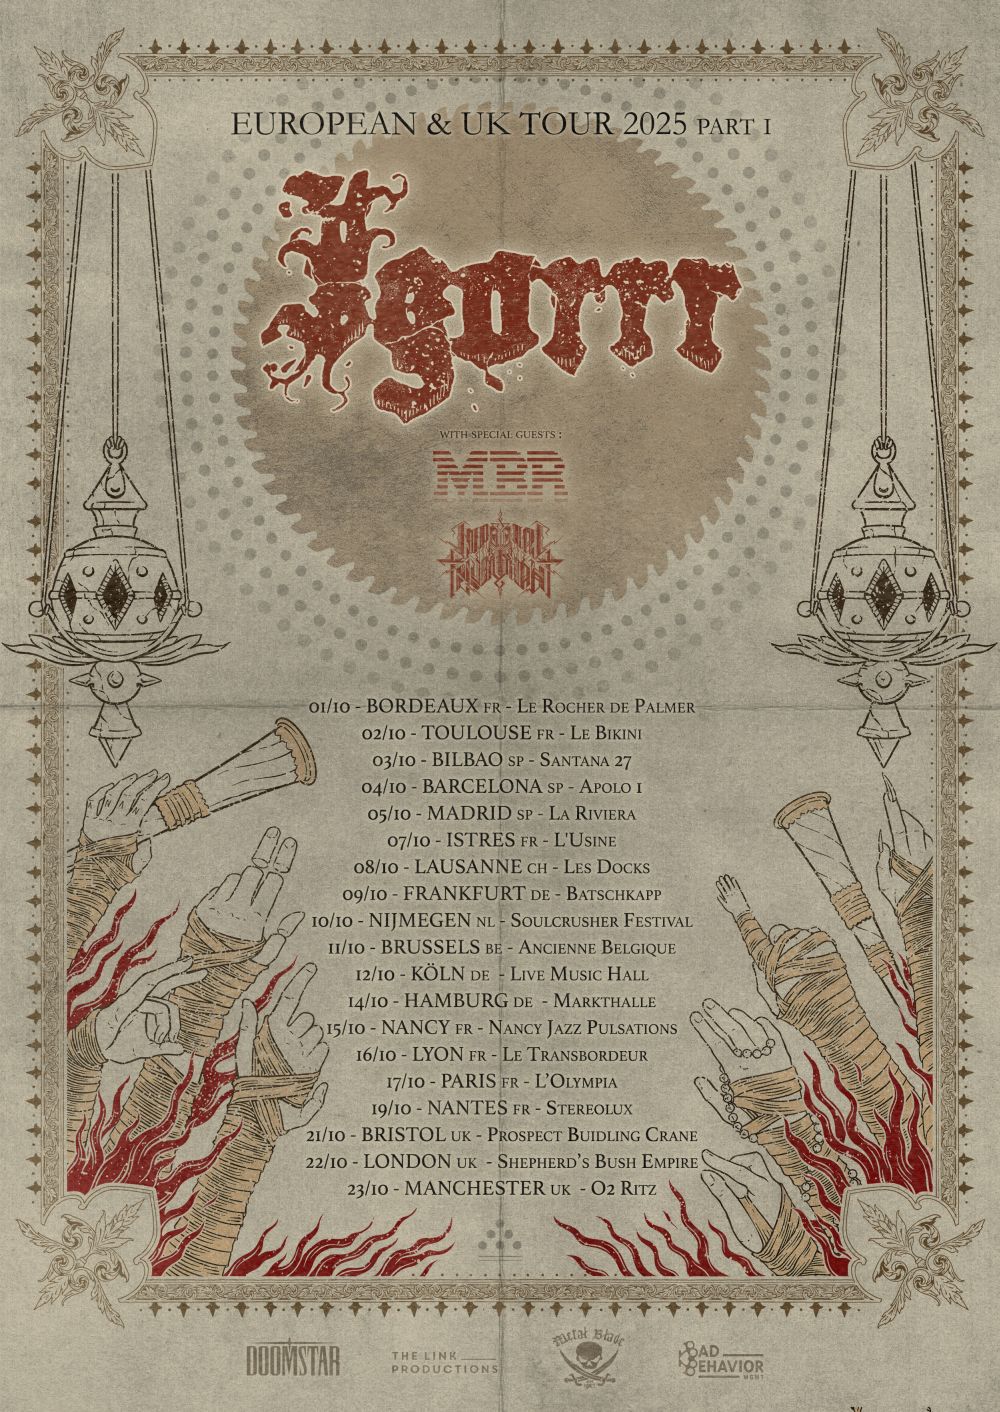 EUROPEAN & UK TOUR 2025 PART I
Igorrr
WITH SPECIAL GUESTS :
MBR
IMPERIAL TRIUMPHANT
01/10 - BORDEAUX FR - LE ROCHER DE PALMER
02/10 - TOULOUSE FR - LE BIKINI
03/10 - BILBAO SP - SANTANA 27
04/10 - BARCELONA SP - APOLO 1
05/10 - MADRID SP - LA RIVIERA
07/10 - ISTRES FR - L'USINE
08/10 - LAUSANNE CH - LES DOCKS
09/10 - FRANKFURT DE - BATSCHKAPP
10/10 - NIJMEGEN NL - SOULCRUSHER FESTIVAL
11/10 - BRUSSELS BE - ANCIENNE BELGIQUE
12/10 - KÖLN DE - LIVE MUSIC HALL
14/10 - HAMBURG DE - MARKTHALLE
15/10 - NANCY FR - NANCY JAZZ PULSATIONS
16/10 - LYON FR - LE TRANSBORDEUR
17/10 - PARIS FR - L'OLYMPIA
19/10 - NANTES FR - STEREOLUX
21/10 - BRISTOL UK - PROSPECT BUIDLING CRANE
22/10 - LONDON UK - SHEPHERD'S BUSH EMPIRE
23/10 - MANCHESTER UK - O2 RITZ
DOOMSTAR
THE LINK PRODUCTIONS
Metal Blade
BAD BEHAVIOR MGMT